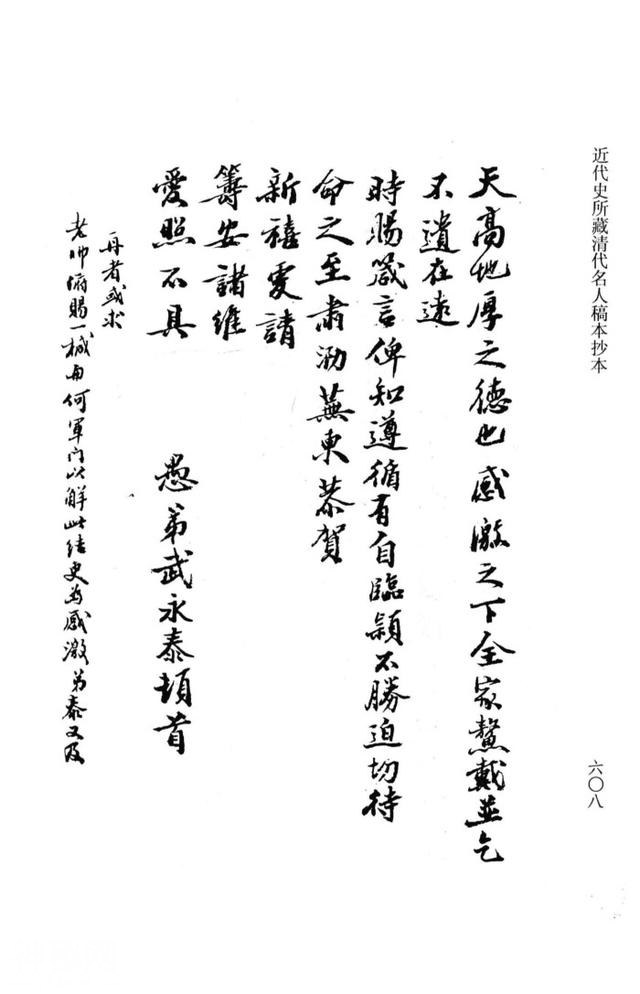 近代史所藏清代名人稿本抄本
六〇八
天高地厚之德也感激之下全家鰲戴並乞
不遺在遠
時賜箴言俾知遵循有自臨穎不勝迫切待
命之至肅泐蕪柬恭賀
新禧虔請
籌安諸維
愛照不具
愚弟武永泰頓首
再者或求
老帥俯賜一椷與何軍門以解此結更為感激弟泰又及